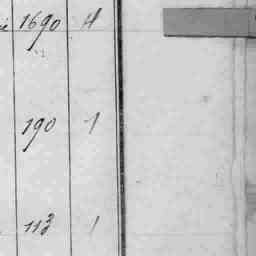 1690 4
190 1
113 1